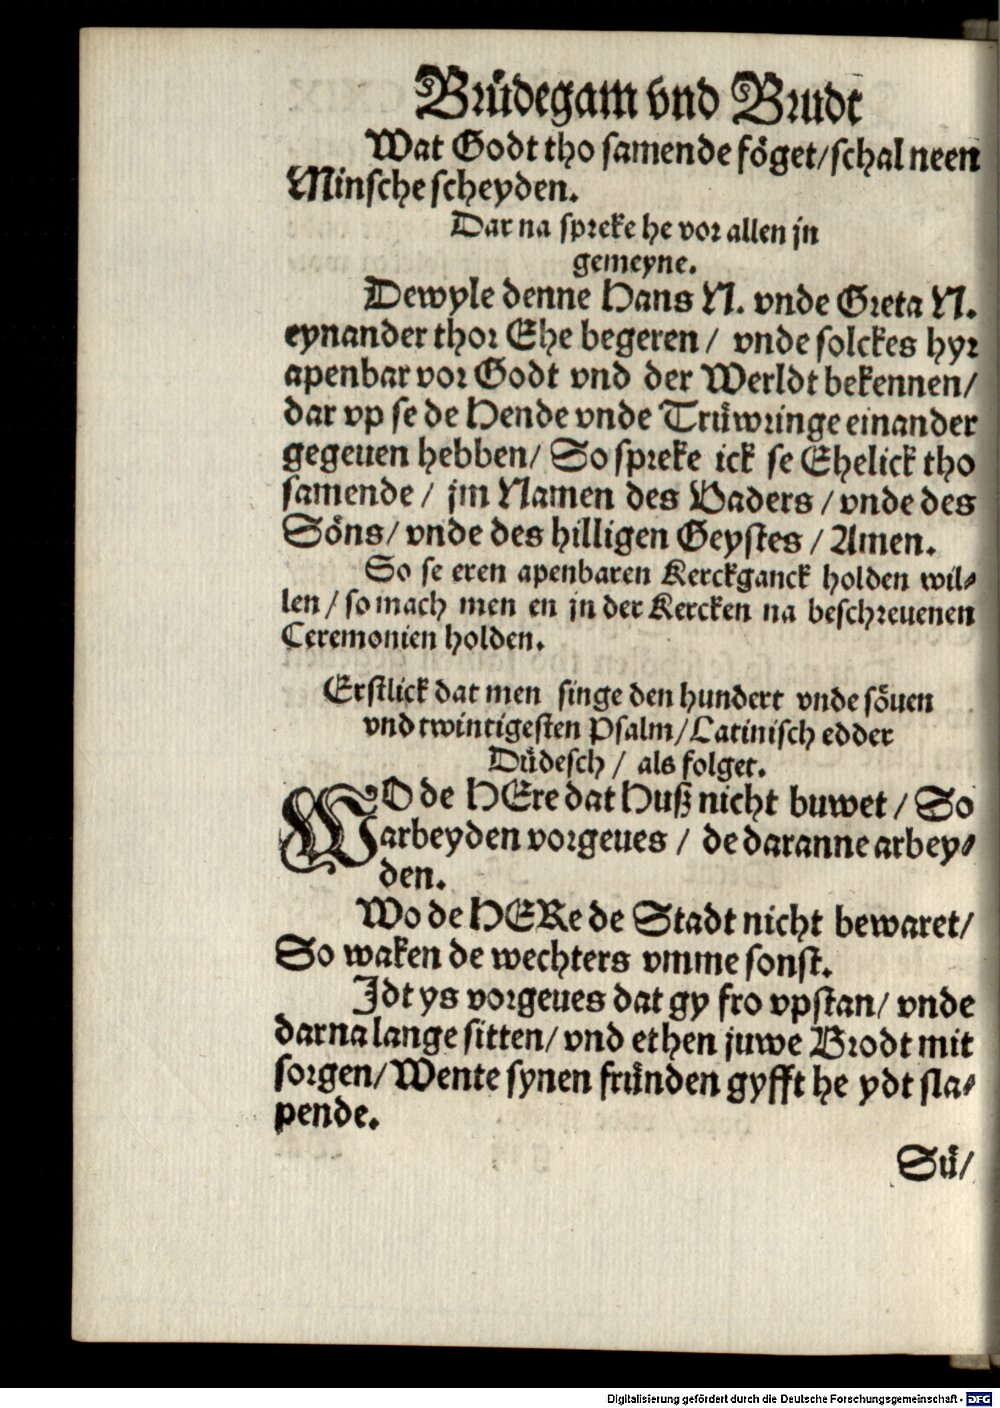 Bruͤdegam vnd Brudt
Wat Godt tho samende foͤget/schal neen
Minsche scheyden.
Dar na spreke he vor allen jn
gemeyne.
Dewyle denne Hans N. vnde Greta N.
eynander thor Ehe begeren / vnde solckes hyr
apenbar vor Godt vnd der Werldt bekennen/
dar vp se de Hende vnde Truͤwringe einander
gegeuen hebben/ So spreke ick se Ehelick tho
samende / jm Namen des Vaders / vnde des
Soͤns/ vnde des hilligen Geystes / Amen.
So se eren apenbaren Kerckganck holden wil⸗
len / so mach men en jn der Kercken na beschreuenen
Ceremonien holden.
Erstlick dat men singe den hundert vnde soͤuen
vnd twintigesten Psalm/Latinisch edder
Duͤdesch / als folget.
WO de HEre dat Huß nicht buwet / So
arbeyden vorgeues / de daranne arbey⸗
den.
Wo de HERe de Stadt nicht bewaret/
So waken de wechters vmme sonst.
Jdt ys vorgeues dat gy fro vpstan/ vnde
darna lange sitten/ vnd ethen juwe Brodt mit
sorgen/Wente synen fruͤnden gyfft he ydt sla⸗
pende.
Suͤ/
Digitalisierung gefördert durch die Deutsche Forschungsgemeinschaft - DFG